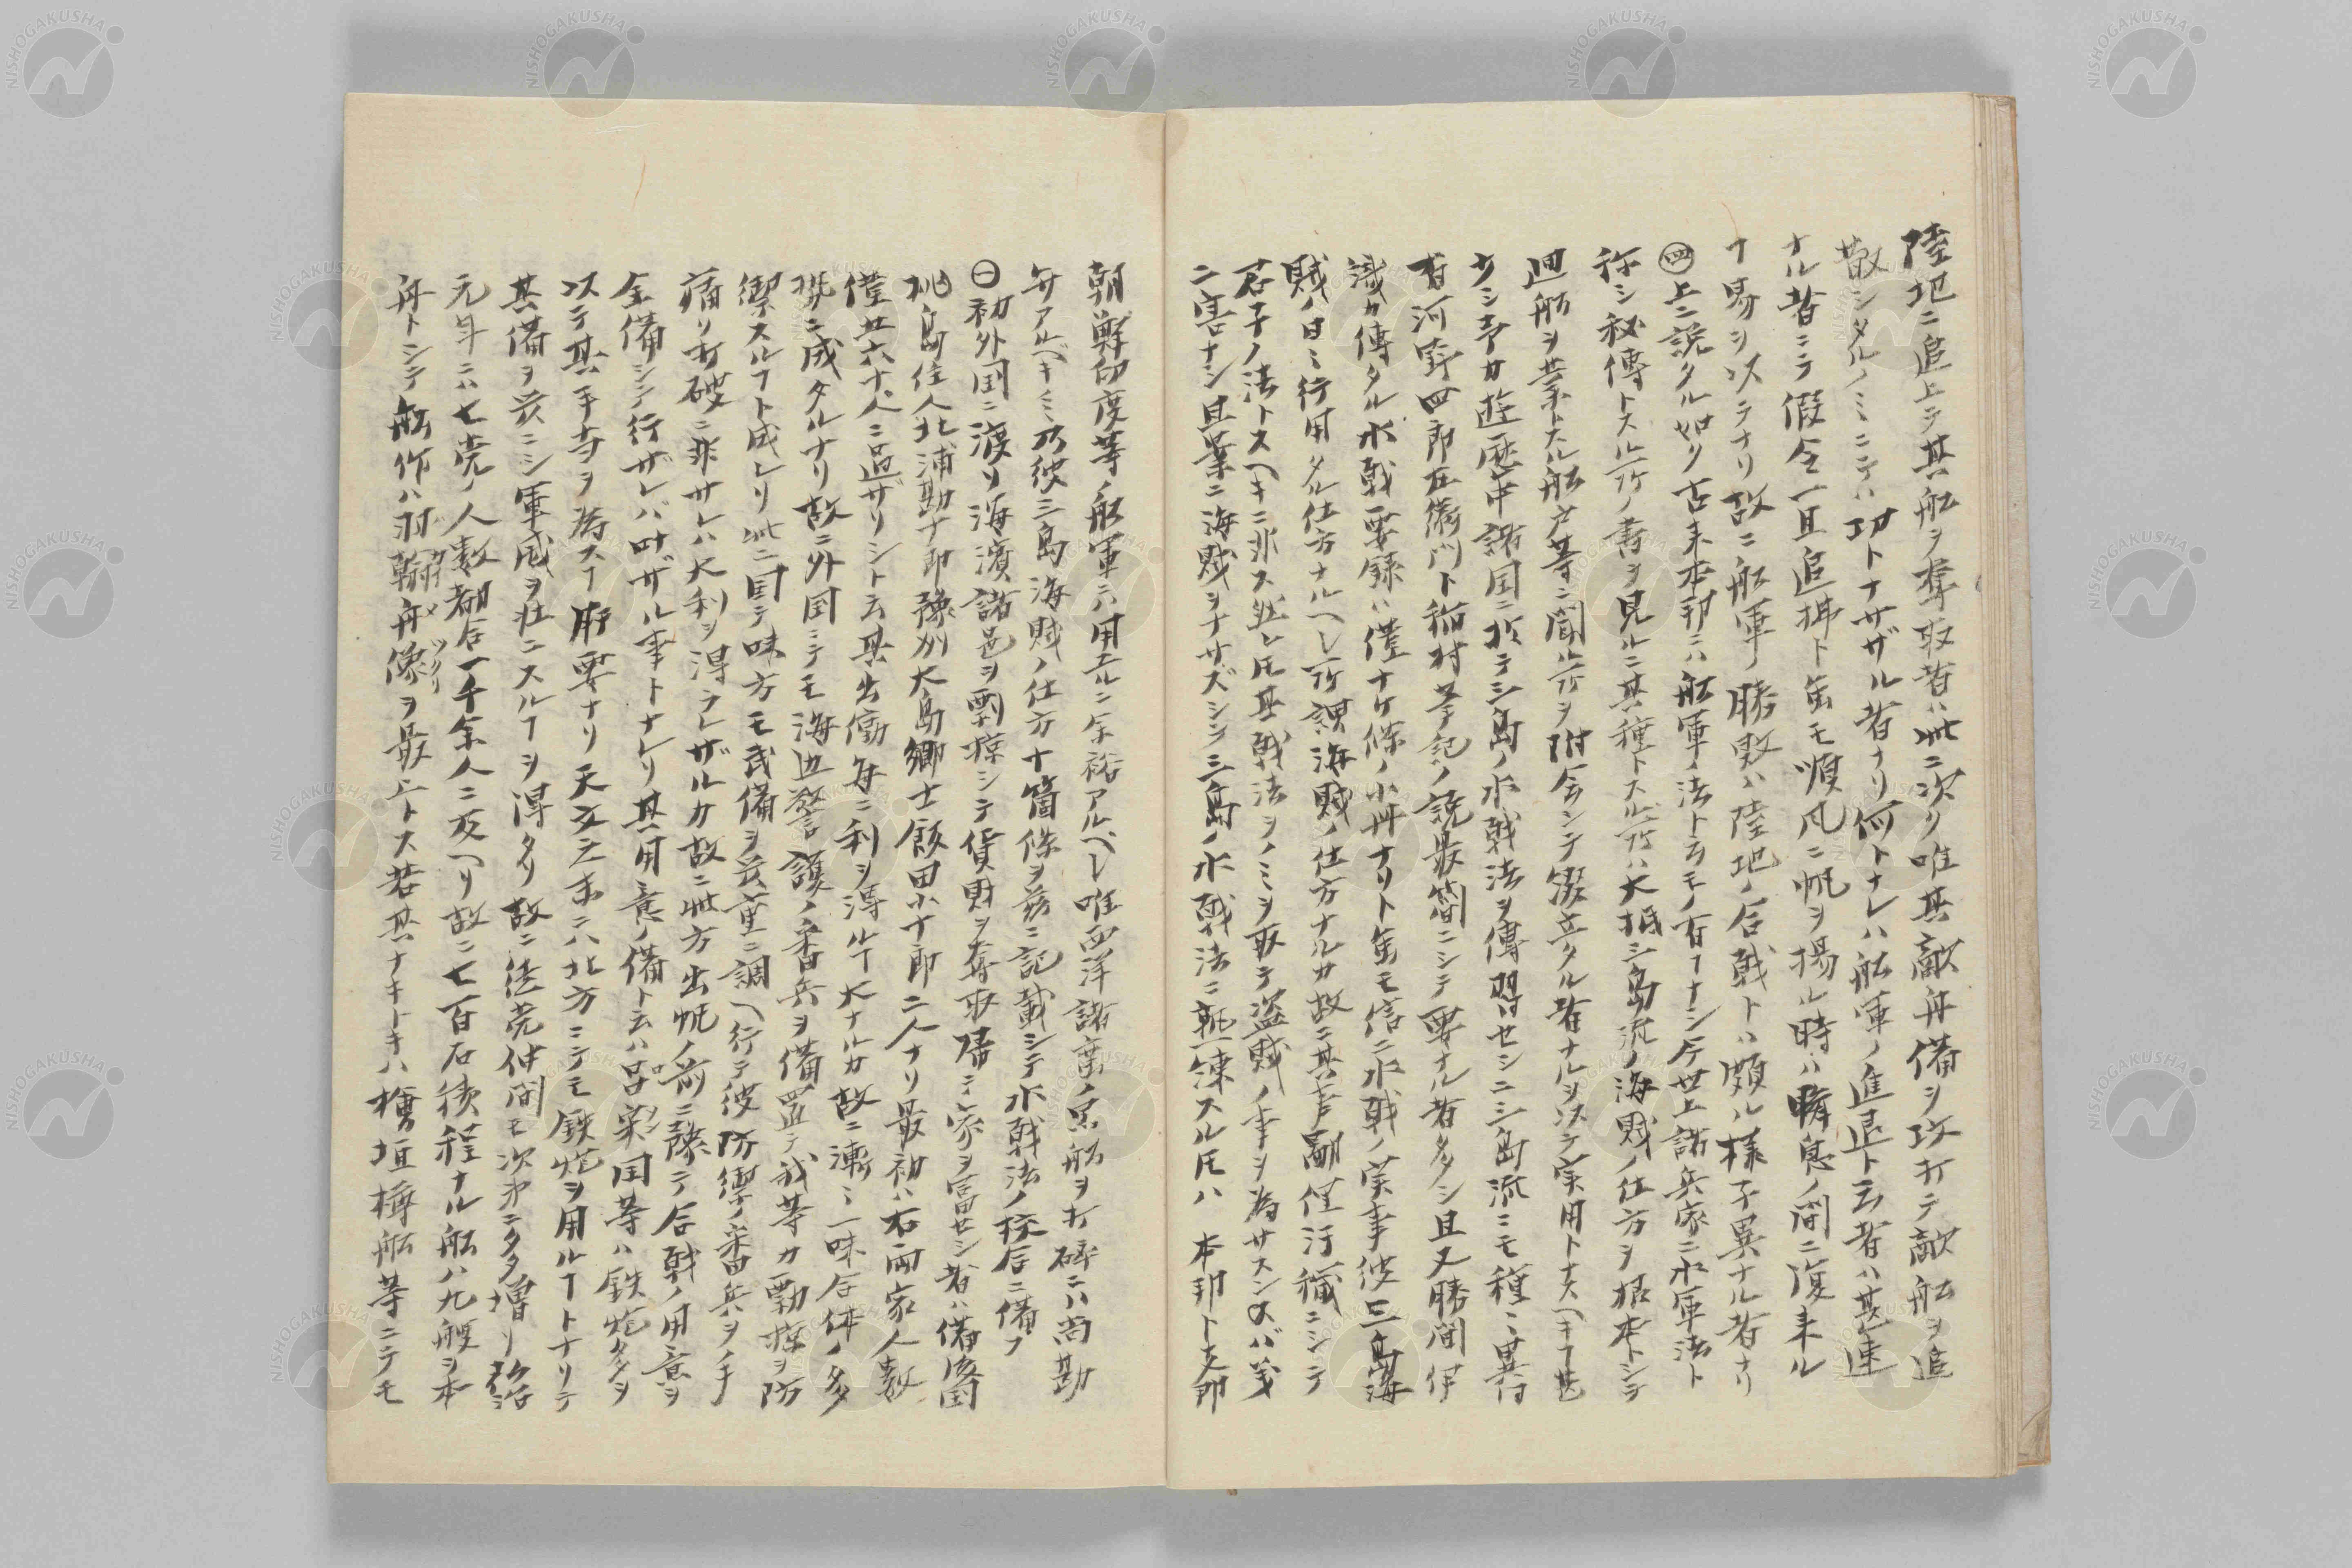 陸地ニ追上テ其舩ヲ奪取者ハ此ニ次リ唯其敵舟備ヲ攻打テ敵舩ヲ追
散シタルノミニテハ功トナサザル者ナリ何トナレハ舩軍ノ進退ト云者ハ甚速
ナル者ニテ假令一旦追拂ト雖モ順風ニ帆ヲ揚ル時ハ瞬息ノ間ニ復来ル
ヿ易ヲ以テナリ故ニ舩軍ノ勝敗ハ陸地ノ合戦トハ頗ル様子異ナル者ナリ
㊃上ニ説タル如ク古来本邦ニハ舩軍ノ法ト云モノ有ヿナシ今世上諸兵家ニ水軍法ト
称シ秘傳トスル所ノ書ヲ見ルニ其種トスル所ハ大抵三島流ノ海賊ノ仕方ヲ根本トシテ
廻舩ヲ業トスル舩戸等ニ聞ル所ヲ附会シテ綴立タル者ナルヲ以テ実用トナスヘキヿ甚
少シ予カ遊歴中諸国ニ於テ三島ノ水戦法ヲ傳習セシニ三島流ニモ種々異同
有河野四郎左衛門ト稲村某ノ記ノ説最簡ニシテ要ナル者多シ且又勝間伊
識カ傳タル水戦要録ハ僅ナケ條ノ小冊ナリト雖モ信ニ水戦ノ実事彼三島海
賊ノ日々行用タル仕方ナルヘシ所謂海賊ノ仕方ナルカ故ニ其言鄙俚汚穢ニシテ
君子ノ法トスヘキニ非ス然レ𪜈其戦法ヲノミヲ取テ盗賊ノ事ヲ為サスンハ義
ニ害ナシ且業ニ海賊ヲナサズシテ三島ノ水戦法ニ熟練スル𪜈ハ 本邦ト支那
朝鮮印度等ノ舩軍ニハ用ルニ余裕アルベシ唯西洋諸蛮ノ黒舩ヲ打碎ニハ尚勘
弁アルベキノミ乃彼三島海賊ノ仕方十箇條ヲ茲ニ記載シテ水戦法ノ校合ニ備フ
㊀初外国ニ渡リ海濱諸邑ヲ剽掠シテ貨財ヲ奪取帰テ家ヲ富セシ者ハ備後国
桃島住人北浦勘十郎豫州大島郷士飯田小十郎二人ナリ最初ハ右両家人数
僅廿六七人ニ過ザリシト云其出働毎ニ利ヲ得ルヿ大ナルカ故ニ漸々一味合体ノ多
勢ニ成タルナリ故ニ外国ニテモ海辺警護ノ番兵ヲ備置テ我等カ剽掠ヲ防
禦スルヿト成レリ此ニ因テ味方モ武備ヲ厳重ニ調ヘ行テ彼防禦ノ番兵ヲ手
痛ク打破ニ非サレハ大利ヲ得ラレザルカ故ニ此方出帆ノ前ニ豫テ合戦ノ用意ヲ
全備シテ行ザレバ叶ザル事トナレリ其用意ノ備ト云ハ呂宋国等ハ鉄炮多ヲ
以テ其手当ヲ為スヿ肝要ナリ天文之末ニハ北方ニテモ鉄炮ヲ用ルヿトナリテ
其備ヲ厳ニシ軍威ヲ壮ニスルヿヲ得タリ故ニ徒党仲間モ次第ニ多増リ弘治
元年ニハ七党ノ人数都合一千余人ニ及ヘリ故ニ七百石積程ナル舩ハ九艘ヲ本
舟トシテ舩作ハ羽翰舟像ヲ最上トス若其ナキトキハ檜垣樽舩等ニテモ